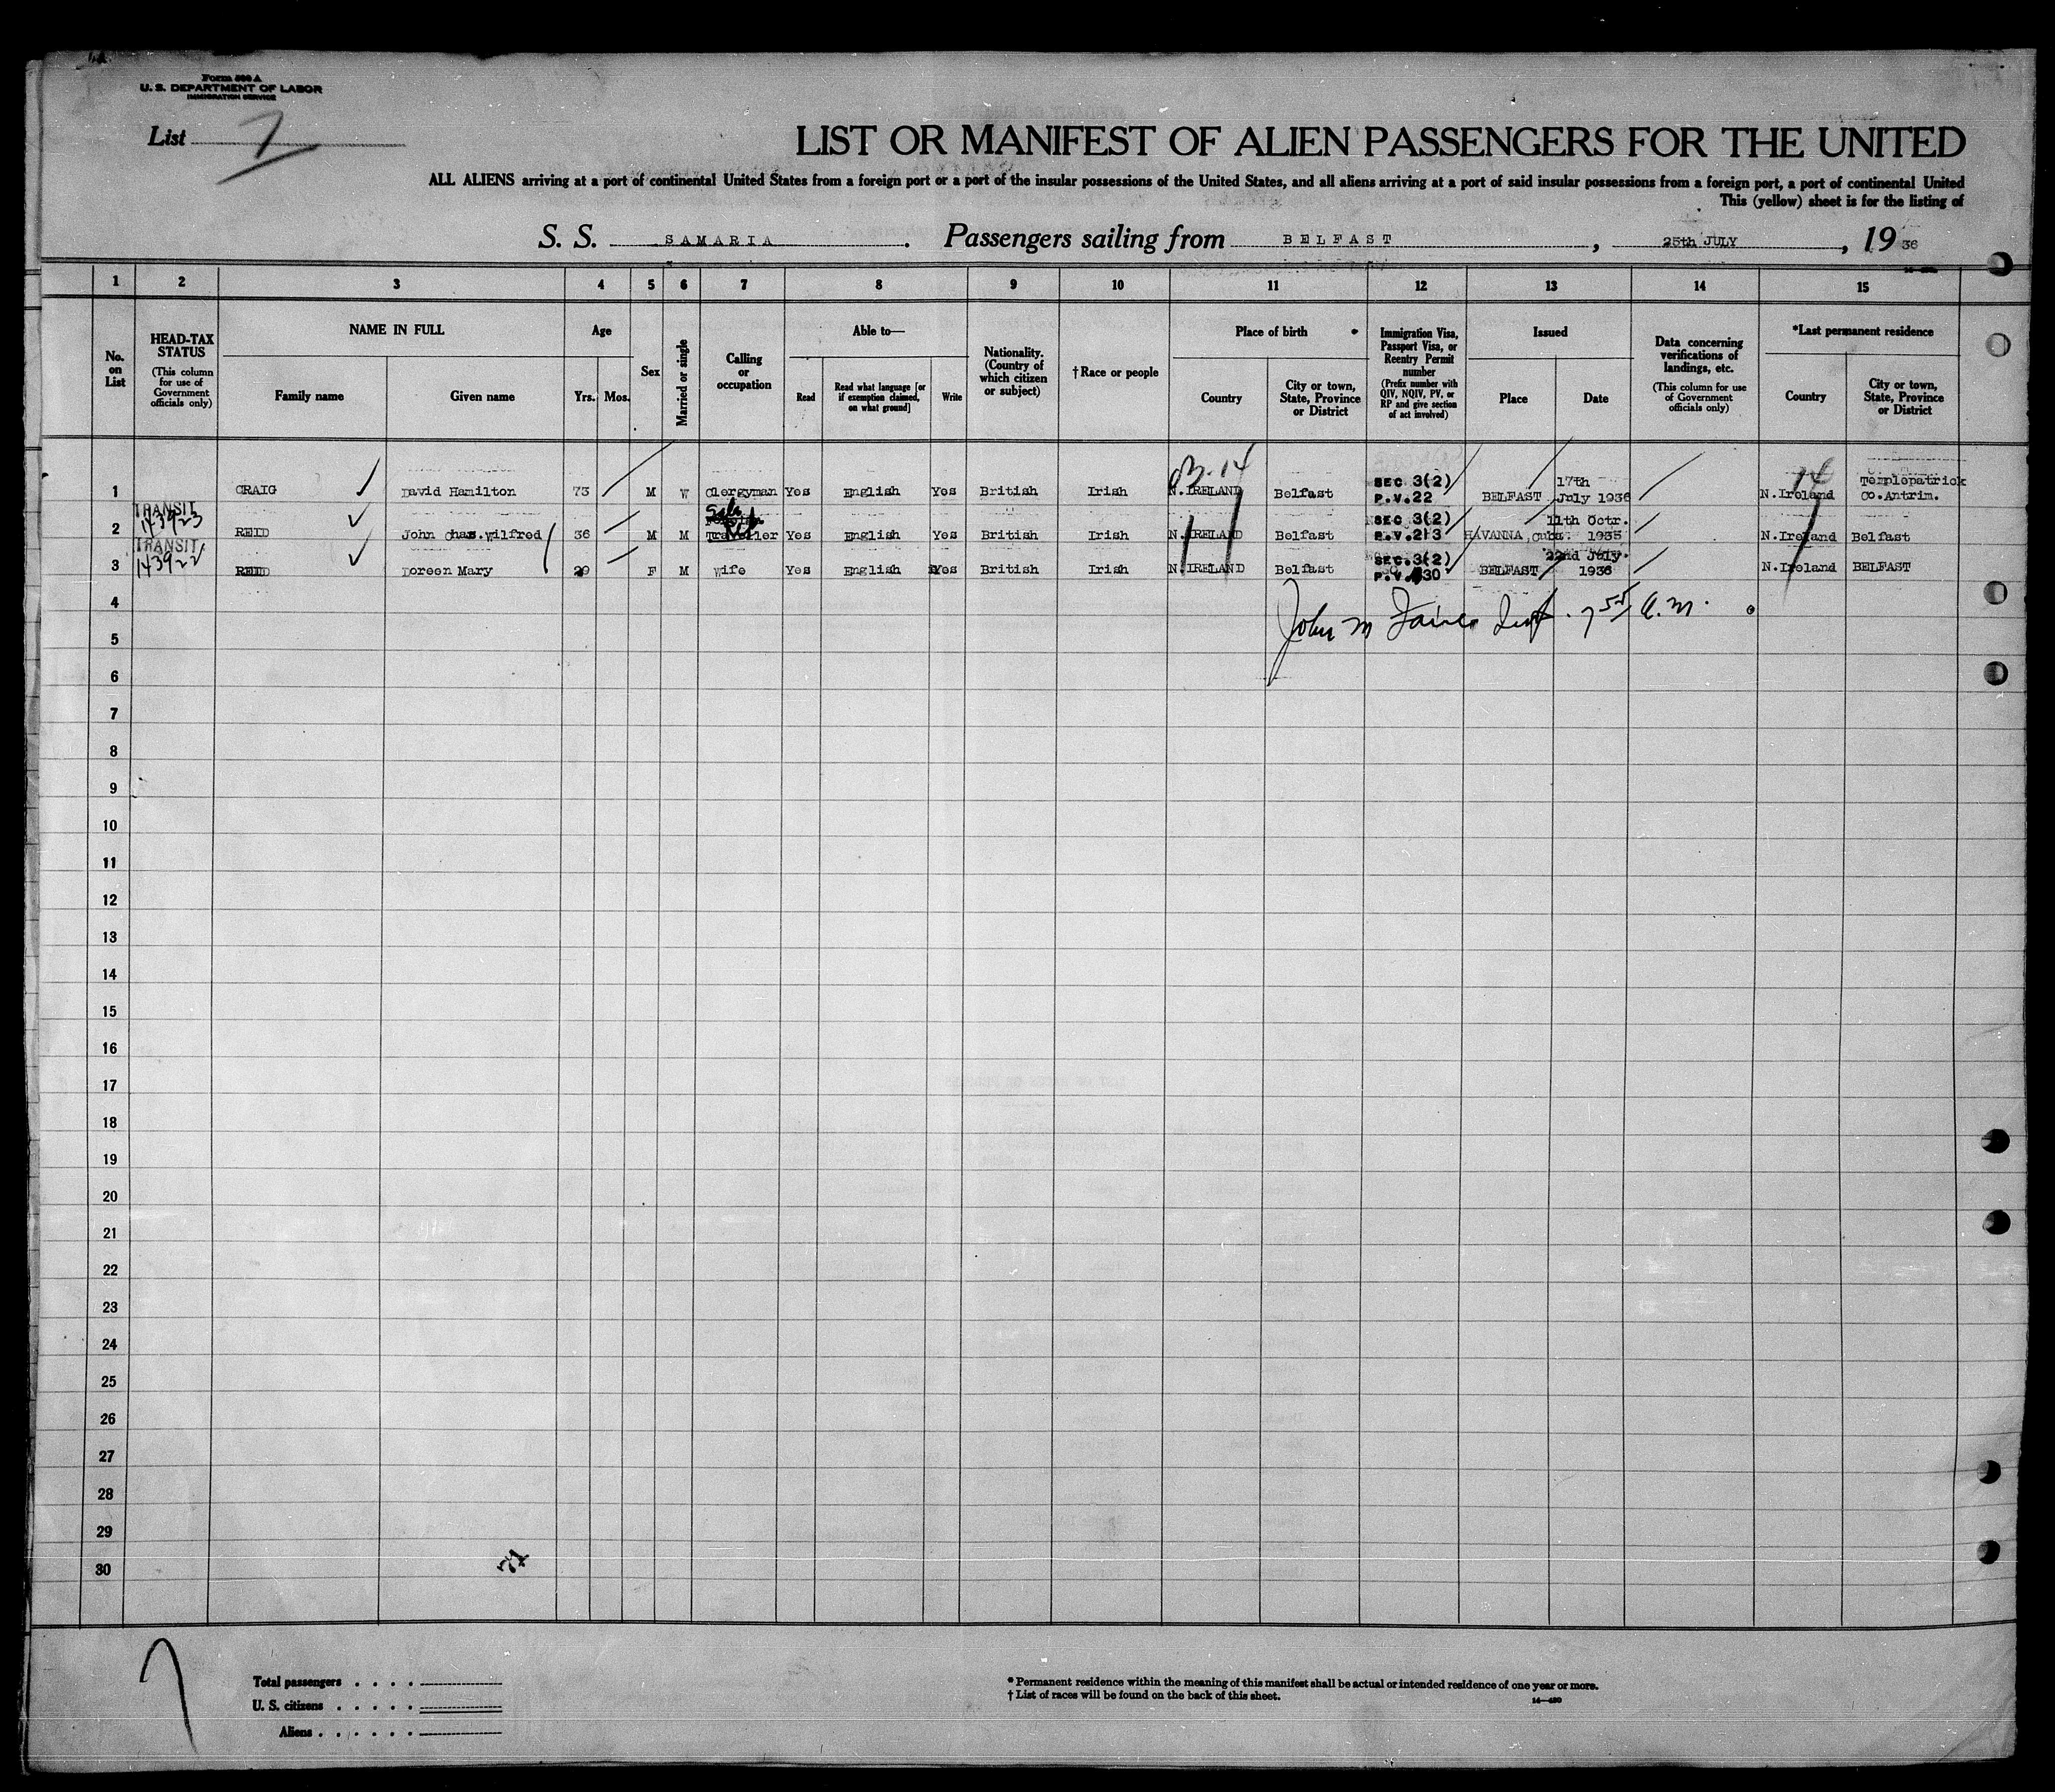 Form 500 A
U. S. DEPARTMENT OF LABOR
IMMIGRATION SERVICE
List 7
LIST OR MANIFEST OF ALIEN PASSENGERS FOR THE UNITED
ALL ALIENS arriving at a port of continental United States from a foreign port or a port of the insular possessions of the United States, and all aliens arriving at a port of said insular possessions from a foreign port, a port of continental United
This (yellow) sheet is for the listing of
S. S. SAMARIA. Passengers sailing from BELFAST, 25th JULY, 1936
1 2 3 4 5 6 7 8 9 10 11 12 13 14 15
No. on List
HEAD-TAX STATUS
(This column for use of Government officials only)
NAME IN FULL
Family name
Given name
Age
Yrs. Mos.
Sex
Married or single
Calling or occupation
Able to—
Read
Read what language [or if exemption claimed, on what ground]
Write
Nationality. (Country of which citizen or subject)
†Race or people
Place of birth
Country
City or town, State, Province or District
Immigration Visa, Passport Visa, or Reentry Permit number
(Prefix number with QIV, NQIV, PV, or RP and give section of act involved)
Issued
Place
Date
Data concerning verifications of landings, etc.
(This column for use of Government officials only)
*Last permanent residence
Country
City or town, State, Province or District
03-14
14
1 CRAIG David Hamilton 73 M W Clergyman Yes English Yes British Irish N.IRELAND Belfast SEC 3(2) P.V.22 BELFAST 17th July 1936 N.Ireland Templepatrick Co.Antrim.
TRANSIT 143923
2 REID John Chas.Wilfred 36 M M Traveller Yes English Yes British Irish N.IRELAND Belfast SEC 3(2) P.V.213 HAVANNA,Cuba. 11th Octr. 1935 N.Ireland Belfast
TRANSIT 143922
3 REID Doreen Mary 29 F M Wife Yes English Yes British Irish N.IRELAND Belfast SEC.3(2) P.V. 30 BELFAST 22nd July. 1936 N.Ireland BELFAST
4 John M 7 55 A.M.
5
6
7
8
9
10
11
12
13
14
15
16
17
18
19
20
21
22
23
24
25
26
27
28
29
30
7
Total passengers . . . .
U. S. citizens . . . . .
Aliens . . . . . .
* Permanent residence within the meaning of this manifest shall be actual or intended residence of one year or more.
† List of races will be found on the back of this sheet.
14—480